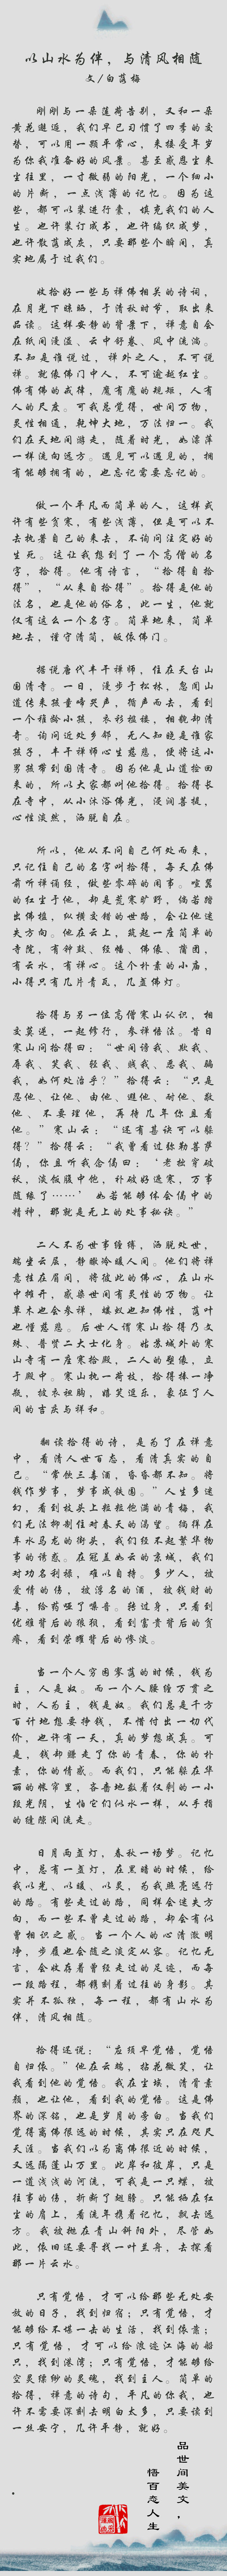 以山水为伴，与清风相随
文/白落梅
刚刚与一朵莲荷告别，又和一朵
黄花邂逅，我们早已习惯了四季的交
替，可以用一颗平常心，来接受年岁
为你我准备好的风景。甚至感恩生来
生往里，一寸微弱的阳光，一个细小
的片断，一点浅薄的记忆。因为这
些，都可以装进行囊，填充我们的人
生。也许装订成书，也许编织成梦，
也许散落成灰，只要那些个瞬间，真
实地属于过我们。
收拾好一些与禅佛相关的诗词，
在月光下晾晒，于清秋时节，取出来
品读。这样安静的背景下，禅意自会
在纸间漫溢、云中舒卷、风中流淌。
不知是谁说过，禅外之人，不可说
禅。就像佛门中人，不可逾越红尘。
佛有佛的戒律，魔有魔的规矩，人有
人的尺度。可我总觉得，世间万物，
灵性相通，乾坤大地，万法归一。我
们在天地间游走，随着时光，如漂萍
一样流向远方。遇见可以遇见的，拥
有能够拥有的，也忘记需要忘记的。
做一个平凡而简单的人，这样或
许有些贫寒，有些浅薄，但是可以不
去执着自己的来去，不询问注定好的
生死。这让我想到了一个高僧的名
字，拾得。他有诗言，“拾得自拾
得”，“从来自拾得”。拾得是他的
法名，也是他的俗名，此一生，他就
仅有这么一个名字。简单地来，简单
地去，谨守清简，皈依佛门。
据说唐代丰干禅师，住在天台山
国清寺。一日，漫步于松林，忽闻山
道传来孩童啼哭声，循声而去，看到
一个稚龄小孩，衣衫褴褛，相貌却清
奇。询问近处乡邻，无人知晓是谁家
孩子，丰干禅师心生慈悲，便将这小
男孩带到国清寺。因为他是山道捡回
来的，所以大家都叫他拾得。拾得长
在寺中，从小沐浴佛光，浸润菩提，
心性淡然，洒脱自在。
所以，他从不问自己何处而来，
只记住自己的名字叫拾得，每天在佛
前听禅诵经，做些零碎的闲事。喧嚣
的红尘于他，却是荒寒旷野，倘若踏
出佛槛，纵横交错的世路，会让他迷
失方向。他在云上，筑起一座简单的
寺院，有钟鼓、经幡、佛像、蒲团，
有云水，有禅心。这个朴素的小庙，
小得只有几片青瓦，几盏佛灯。
拾得与另一位高僧寒山认识，相
交莫逆，一起修行，参禅悟法。昔日
寒山问拾得曰：“世间谤我、欺我、
辱我、笑我、轻我、贱我、恶我、骗
我，如何处治乎？”拾得云：“只是
忍他、让他、由他、避他、耐他、敬
他、不要理他，再待几年你且看
他。”寒山云：“还有甚诀可以躲
得？”拾得云：“我曾看过弥勒菩萨
偈，你且听我念偈曰：‘老拙穿破
袄，淡饭腹中饱，补破好遮寒，万事
随缘了……’如若能够体会偈中的
精神，那就是无上的处事秘诀。”
二人不为世事缠缚，洒脱处世，
端坐云层，静瞰冷暖人间。他们将禅
意挂在眉间，将彼此的佛心，在山水
中摊开，感染世间有灵性的万物。让
草木也会参禅，蝼蚁也知佛性，落叶
也懂慈悲。后世人谓寒山拾得乃文
殊、普贤二大士化身。姑苏城外的寒
山寺有一座寒拾殿，二人的塑像，立
于殿中。寒山执一荷枝，拾得捧一净
瓶，披衣袒胸，嬉笑逗乐，象征了人
间的吉庆与祥和。
翻读拾得的诗，是为了在禅意
中，看清人世百态，看清真实的自
己。“常饮三毒酒，昏昏都不知。将
钱作梦事，梦事成铁围。”人生多迷
幻，看到枝头上粒粒饱满的青梅，我
们无法抑制住对春天的渴望。徜徉在
车水马龙的街头，我们经不起繁华物
事的诱惑。在冠盖如云的京城，我们
对功名利禄，难以自持。多少人，被
爱情的伤，被浮名的酒，被钱财的
毒，给药哑了嗓音。转过身，只看到
优雅背后的狼狈，看到富贵背后的贪
瘠，看到荣耀背后的惨淡。
当一个人穷困寥落的时候，钱为
主，人是奴。而一个人腰缠万贯之
时，人为主，钱是奴。我们总是千方
百计地想要挣钱，不惜付出一切代
价，也许有一天，真的梦想成真。可
是，钱却赚走了你的青春，你的朴
素，你的情感。而我们，只能躲在华
丽的帐帘里，吝啬地数着仅剩的一小
段光阴，生怕它们似水一样，从手指
的缝隙间流走。
日月两盏灯，春秋一场梦。记忆
中，总有一盏灯，在黑暗的时候，给
我以光，以暖、以灵，为我照亮远行
的路。有些走过的路，同样会迷失方
向，而一些不曾走过的路，却会有似
曾相识之感。当一个人的心清澈明
净，步履也会随之淡定从容。记忆无
言，会收存着曾经走过的足迹，而每
一段路程，都镌刻着过往的身影。其
实并不孤独，每一程，都有山水为
伴，清风相随。
拾得还说：“应须早觉悟，觉悟
自归依。”他在云端，拈花微笑，让
我看到他的觉悟。我在尘埃，清骨素
颜，也让他，看到我的觉悟。这是佛
界的深铭，也是岁月的旁白。当我们
觉得离佛很远的时候，其实只在咫尺
天涯。当我们以为离佛很近的时候，
又远隔蓬山万里。此岸和彼岸，只是
一道浅浅的河流，可我是一只蝶，被
往事的伤，折断了翅膀。只能栖在红
尘的肩上，看流年携着记忆，飘去远
方。我被抛在青山斜阳外，尽管如
此，依旧还要寻找一叶兰舟，去探看
那一片云水。
只有觉悟，才可以给那些无处安
放的日子，找到归宿；只有觉悟，才
能够给不堪一击的生活，找到依靠；
只有觉悟，才可以给浪迹江海的船
只，找到港湾；只有觉悟，才能够给
空灵缥缈的灵魂，找到主人。简单的
拾得，禅意的诗句，平凡的你我，也
许不需要深刻去明白太多，只要读到
一丝安宁，几许平静，就好。
品世间美文，
悟百态人生